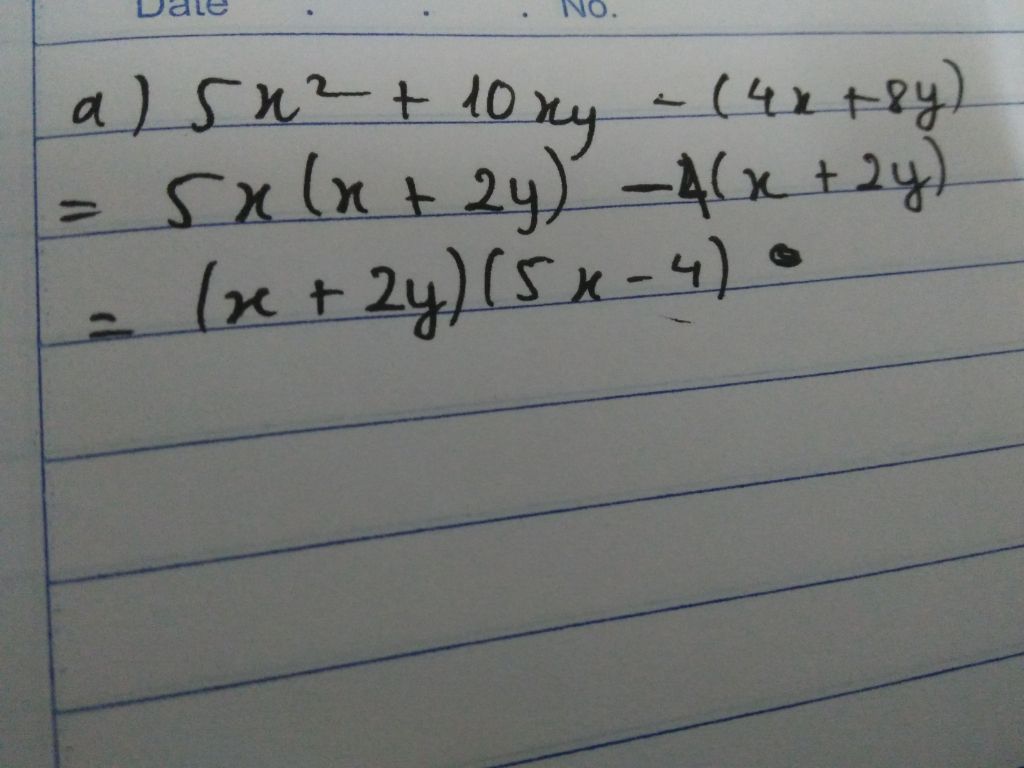 Date . . . No.
a) 5x² + 10xy - (4x + 8y)
= 5x(x + 2y) - 4(x + 2y)
= (x + 2y)(5x - 4)